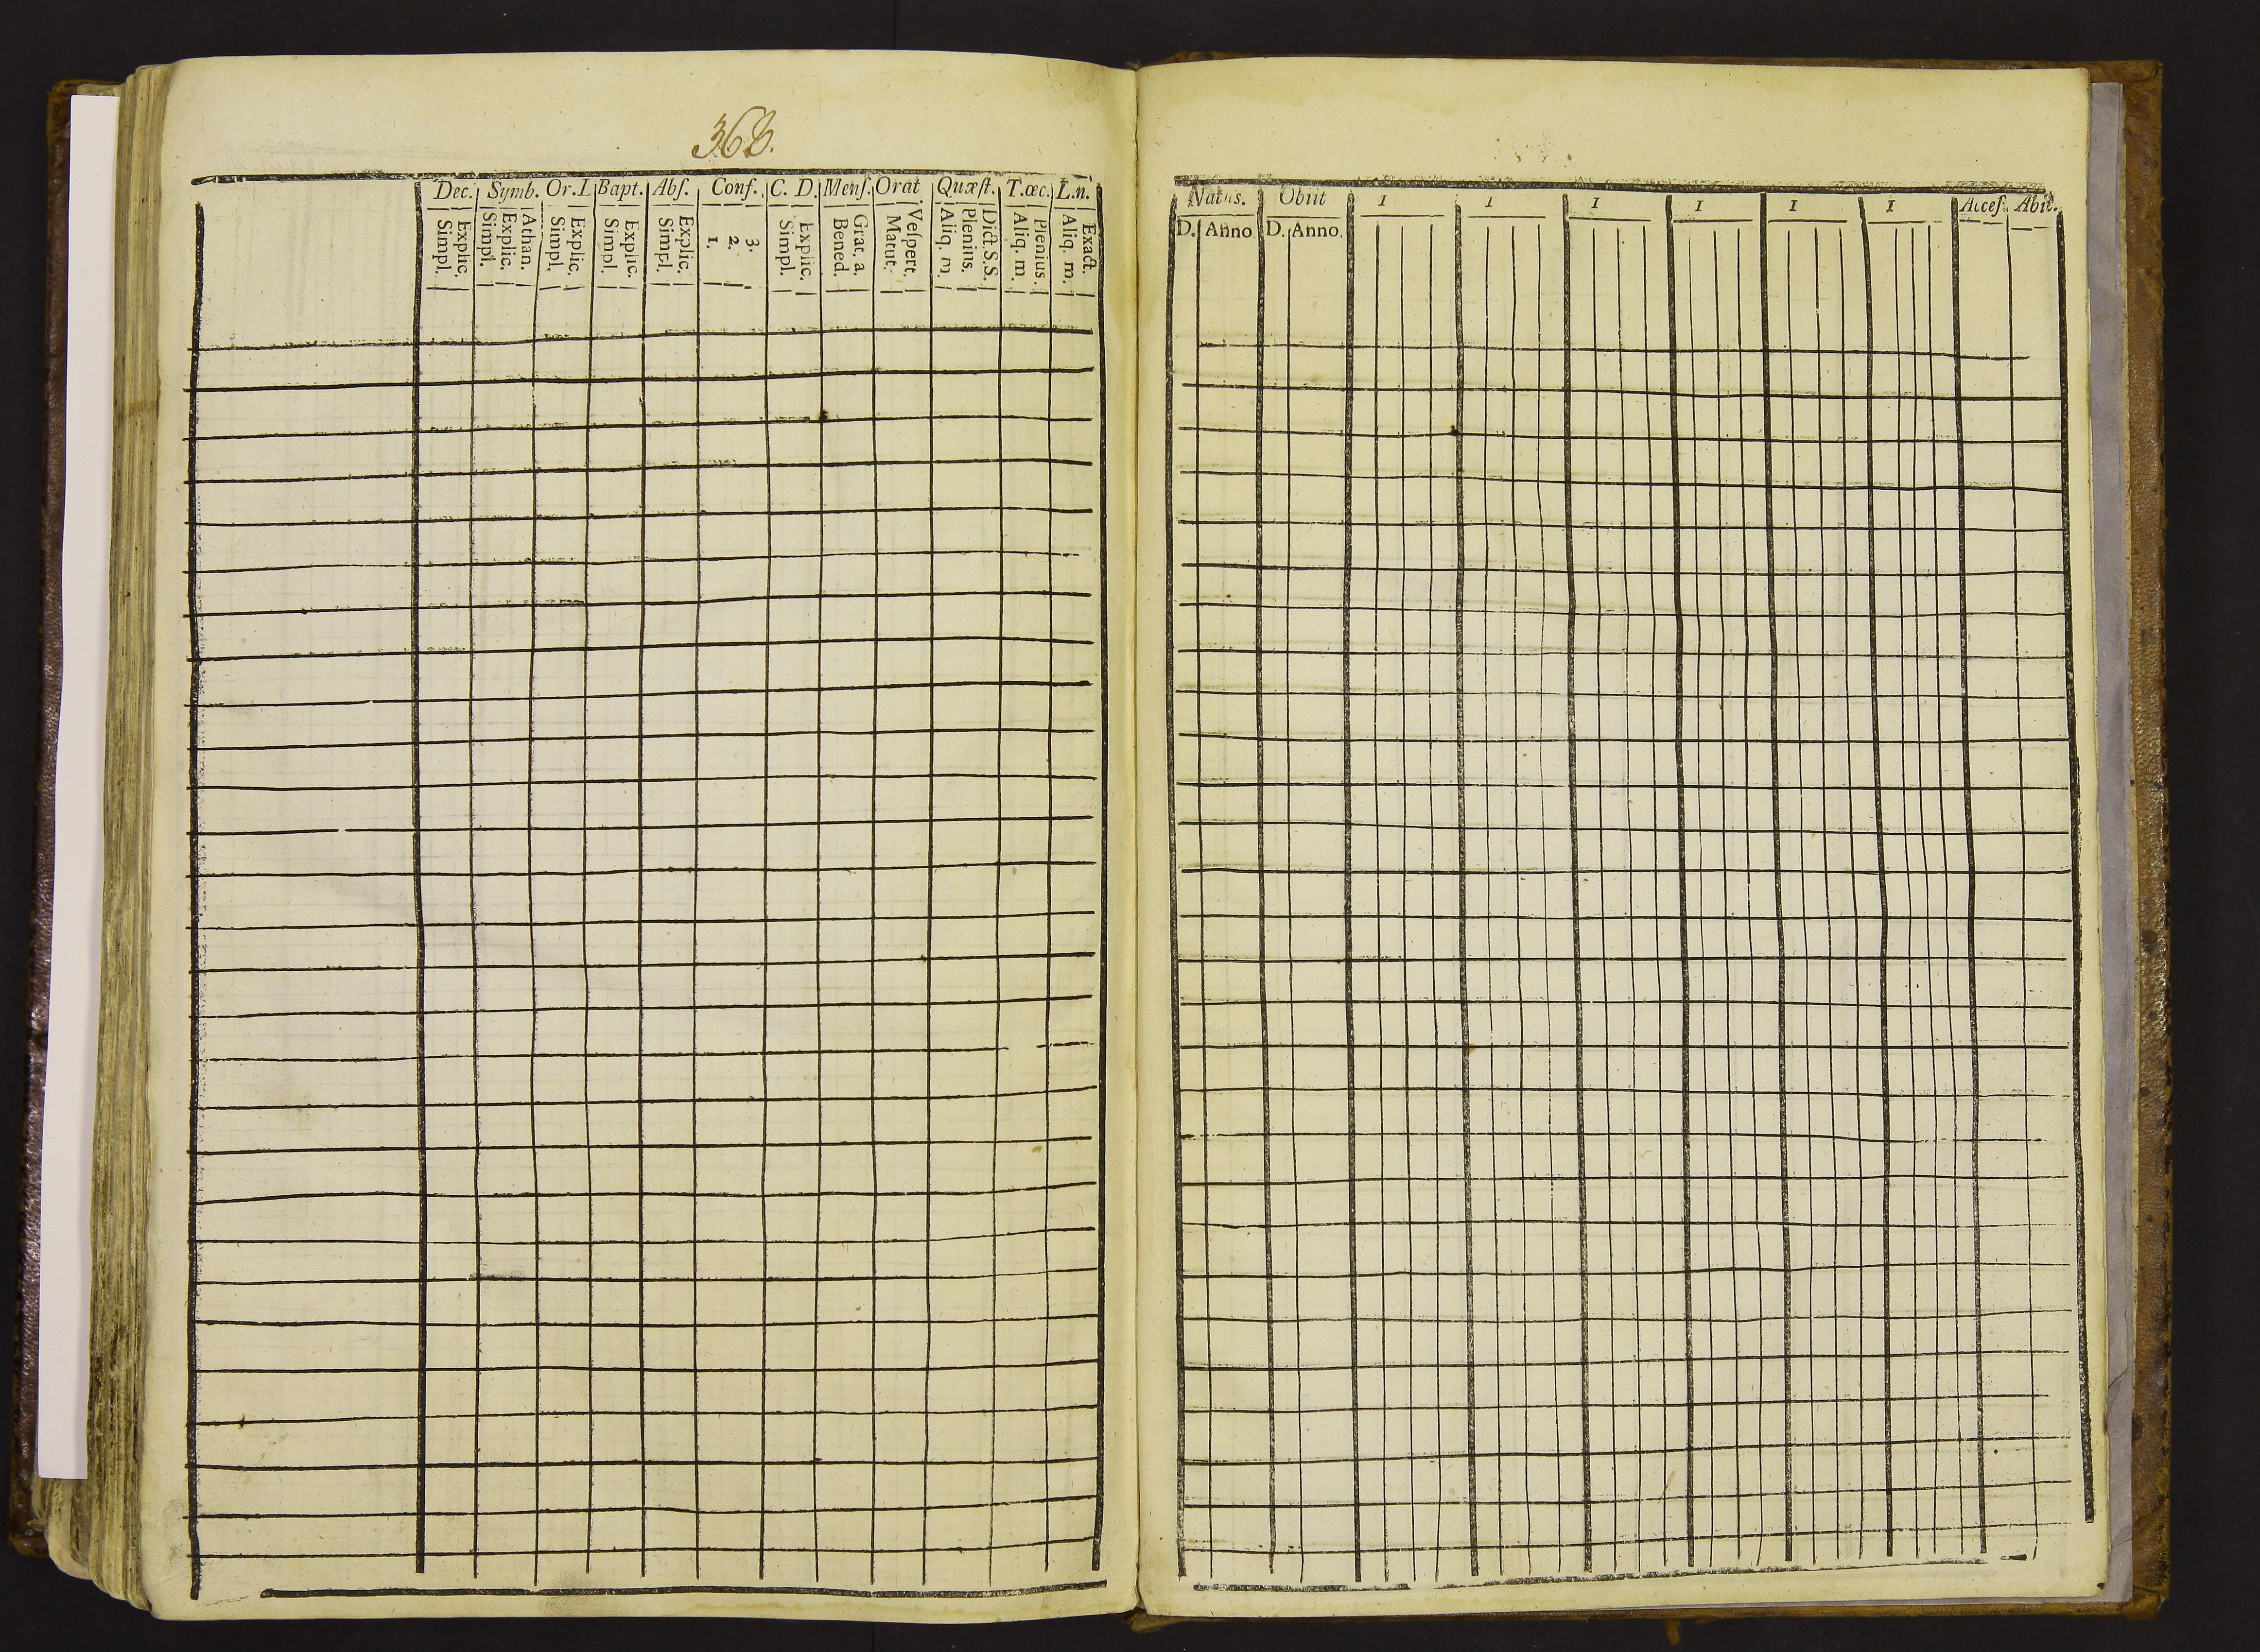 368.
Dec. Symb. Or.I. Bapt. Abſ. Conf. C. D. Menſ. Orat Quæſt. T.œc. L.n.
Simpl. Explic. Simpl. Explic. Athan. Simpl. Explic. Simpl. Explic. Simpl. Explic. 1. 2. 3. Simpl. Explic. Bened. Grat. a. Matut. Veſpert. Aliq. m. Plenius. Dict. S.S. Aliq. m. Plenius. Aliq. m. Exact.
Natus. Obiit I I I I I I Acceſ. Abit.
D. Anno D. Anno.